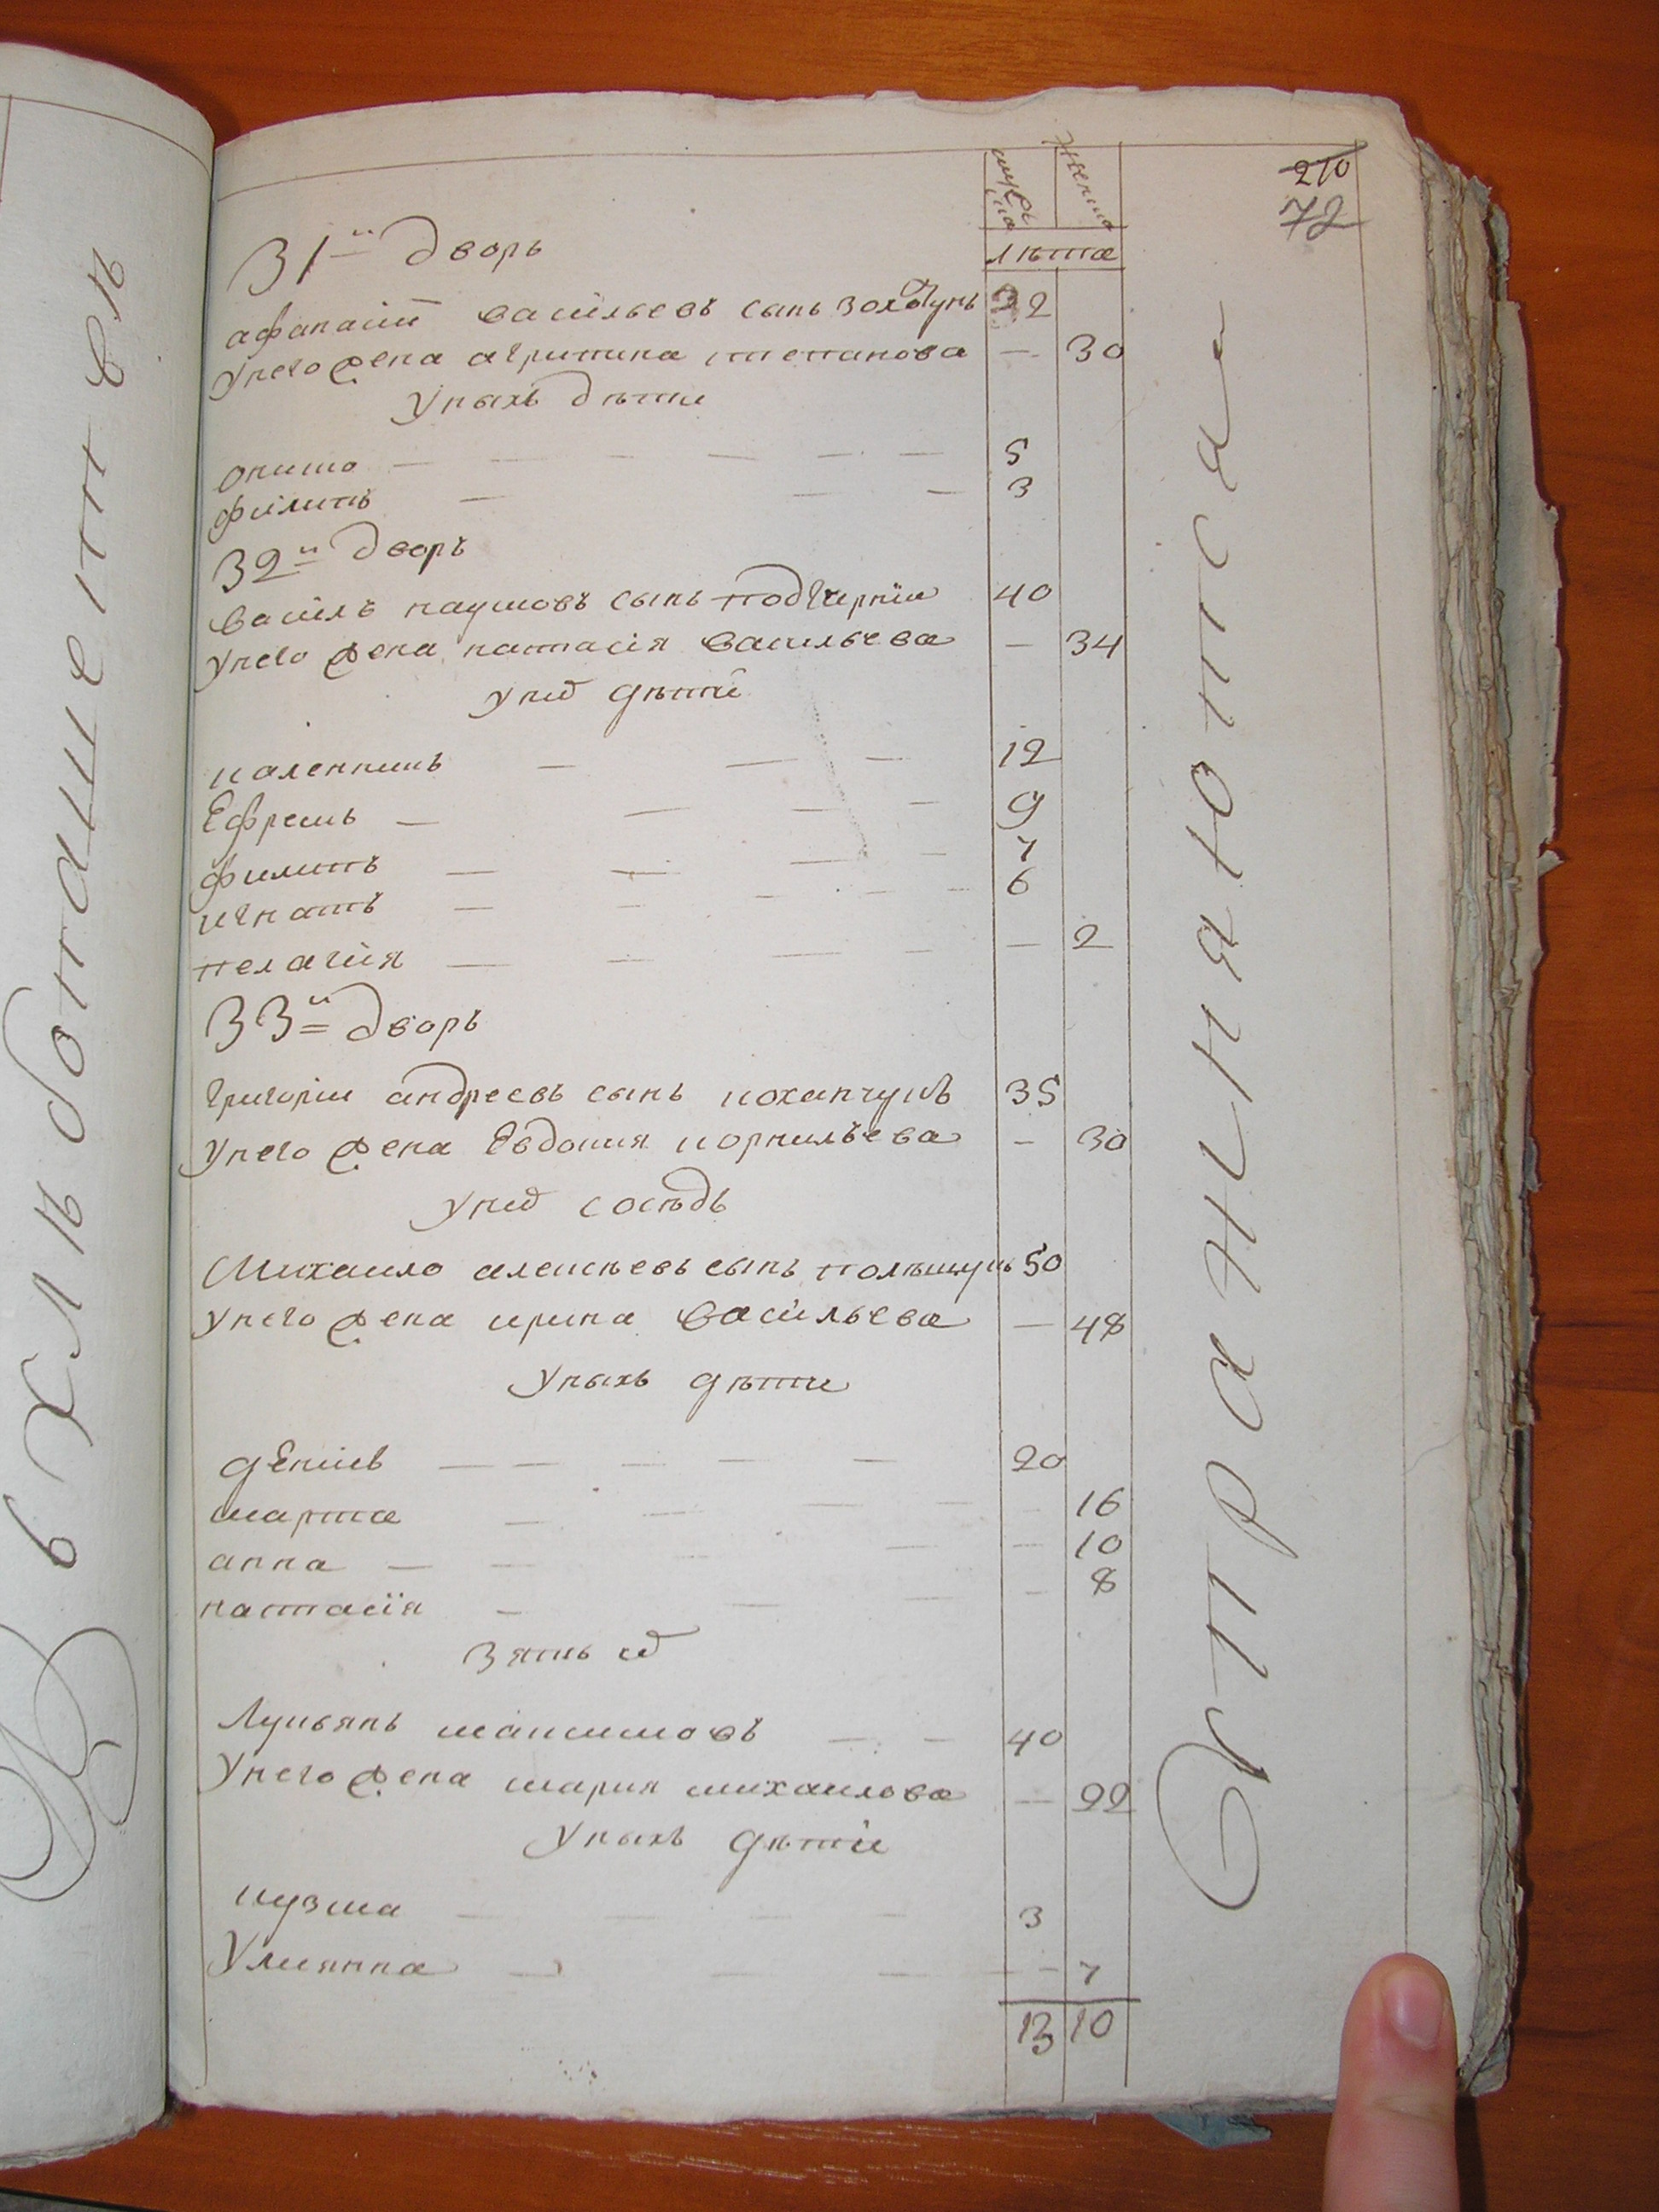 210
72
мужеска
женска
лѣта
31й дворъ
афанасий васильевъ сынъ 32
унего жена агрипина степанова — 30
унихъ дѣти
онишо — 5
филипъ — 3
32й дворъ
василь наумовъ сынъ 40
унего жена настасия васильева — 34
унего дѣти
каленникъ — 12
Ефремъ — 9
филипъ — 7
игнатъ — 6
пелагия — 2
33й дворъ
григории андреевъ сынъ 35
унего жена Евдокия корнильева — 30
унего сосѣдъ
Михаило алексѣевъ сынъ 50
унего жена ирина васильева — 48
унихъ дѣти
денисъ — 20
марта — 16
анна — 10
настасия — 8
зять его
Лукьянъ максимовъ — 40
унего жена мария михаилова — 22
унихъ дѣти
кузма — 3
Улиянна — 7
13 10